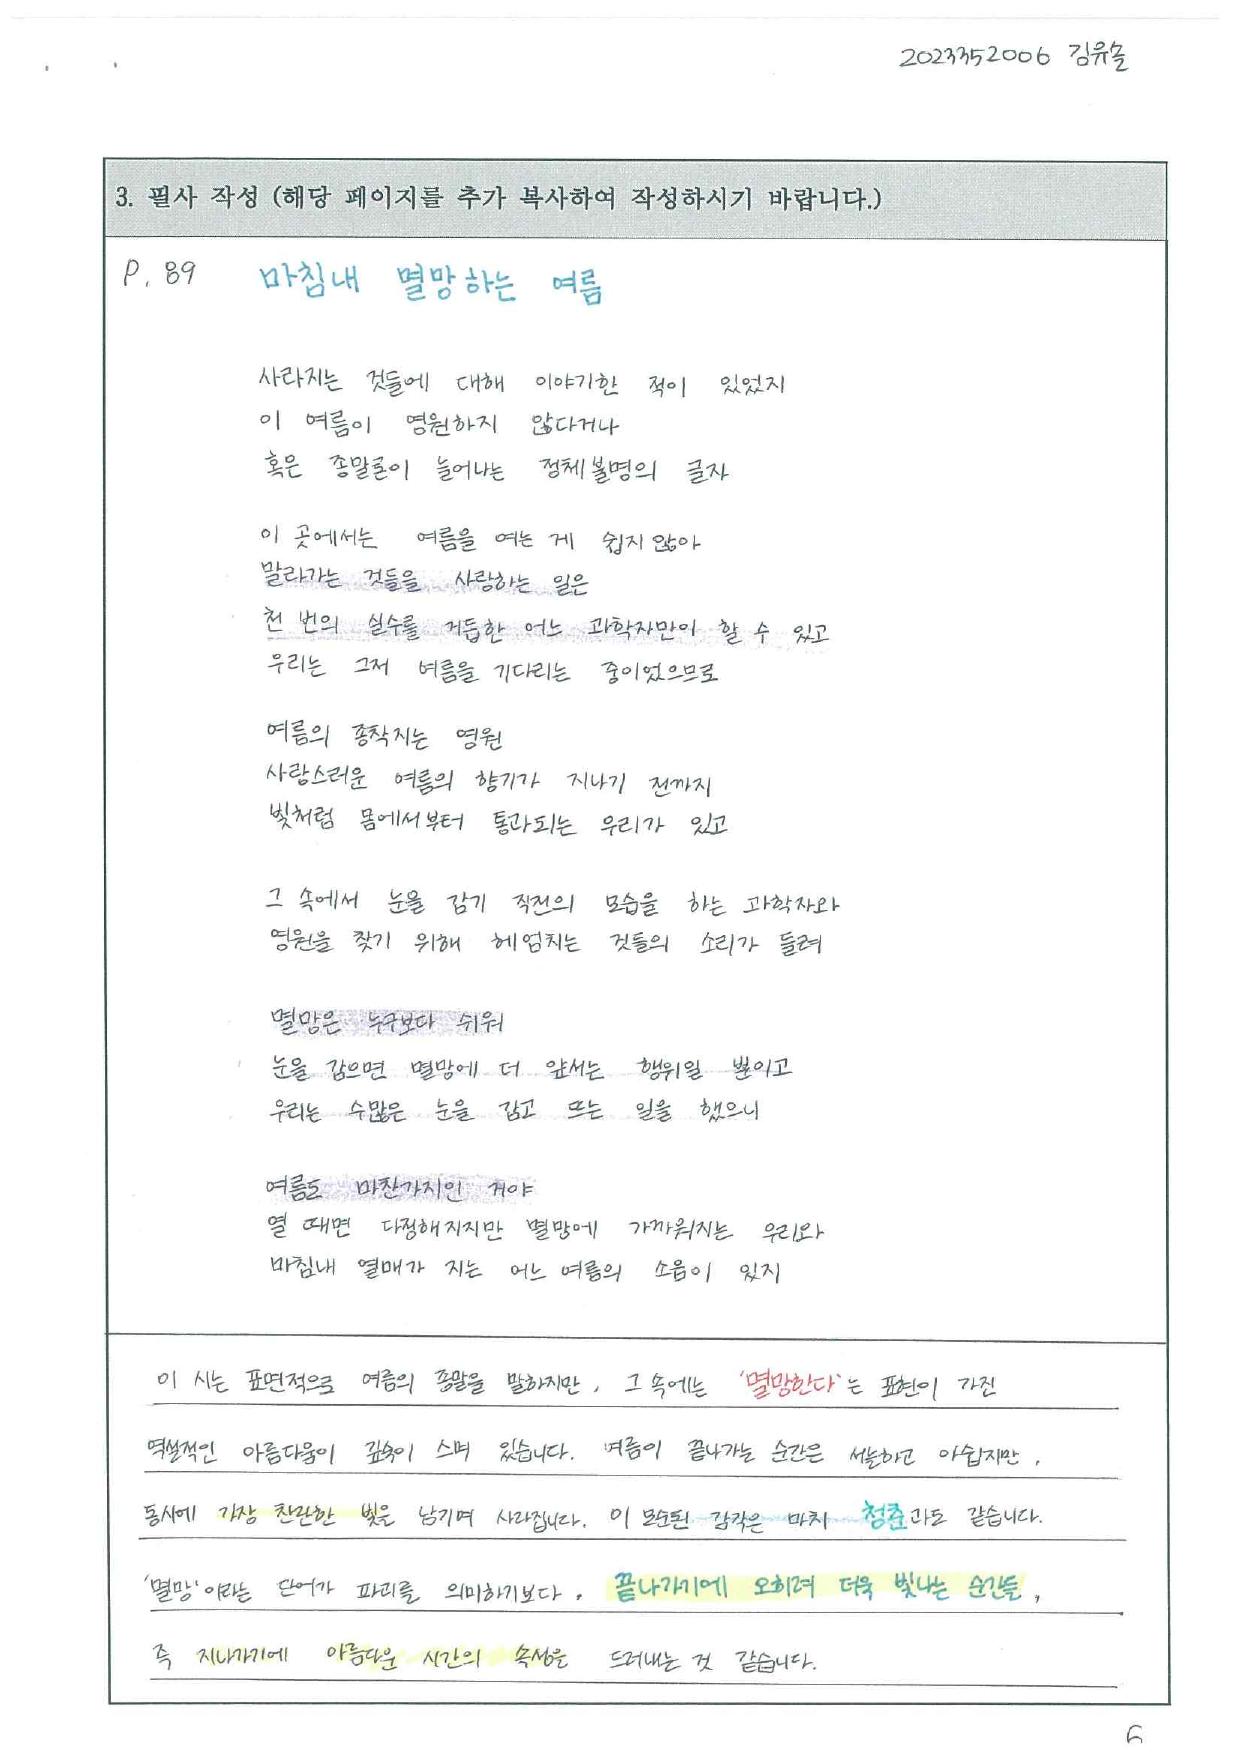 2023352006 김유솔
3. 필사 작성 (해당 페이지를 추가 복사하여 작성하시기 바랍니다.)
P. 89 마침내 멸망하는 여름
사라지는 것들에 대해 이야기한 적이 있었지
이 여름이 영원하지 않다거나
혹은 종말론이 늘어나는 정체불명의 글자
이 곳에서는 여름을 여는 게 쉽지 않아
말라가는 것들을 사랑하는 일은
천 번의 실수를 거듭한 어느 과학자만이 할 수 있고
우리는 그저 여름을 기다리는 중이었으므로
여름의 종착지는 영원
사랑스러운 여름의 향기가 지나기 전까지
빛처럼 몸에서부터 통과되는 우리가 있고
그 속에서 눈을 감기 직전의 모습을 하는 과학자와
영원을 찾기 위해 헤엄치는 것들의 소리가 들려
멸망은 누구보다 쉬워
눈을 감으면 멸망에 더 앞서는 행위일 뿐이고
우리는 수많은 눈을 감고 뜨는 일을 했으니
여름도 마찬가지인 거야
열 때면 다정해지지만 멸망에 가까워지는 우리와
마침내 열매가 지는 어느 여름의 소음이 있지
이 시는 표면적으로 여름의 종말을 말하지만, 그 속에는 '멸망한다'는 표현이 가진
역설적인 아름다움이 깊숙이 스며 있습니다. 여름이 끝나가는 순간은 서늘하고 아쉽지만,
동시에 가장 찬란한 빛을 남기며 사라집니다. 이 모순된 감각은 마치 청춘과도 같습니다.
'멸망'이라는 단어가 파괴를 의미하기보다, 끝나가기에 오히려 더욱 빛나는 순간들,
즉 지나가기에 아름다운 시간의 속성을 드러내는 것 같습니다.
6